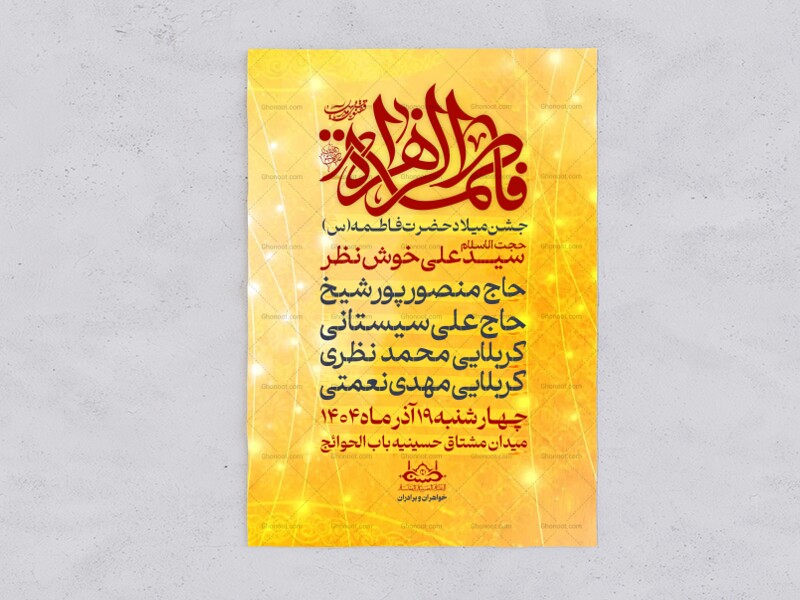 فاطمة الزهراء
جشن میلاد حضرت فاطمه (س)
حجت الاسلام
سید علی خوش نظر
حاج منصور پور شیخ
حاج علی سیستانی
کربلایی محمد نظری
کربلایی مهدی نعمتی
چهارشنبه ۱۹ آذر ماه ۱۴۰۴
میدان مشتاق حسینیه باب الحوائج
خواهران و برادران
Ghonoot.com